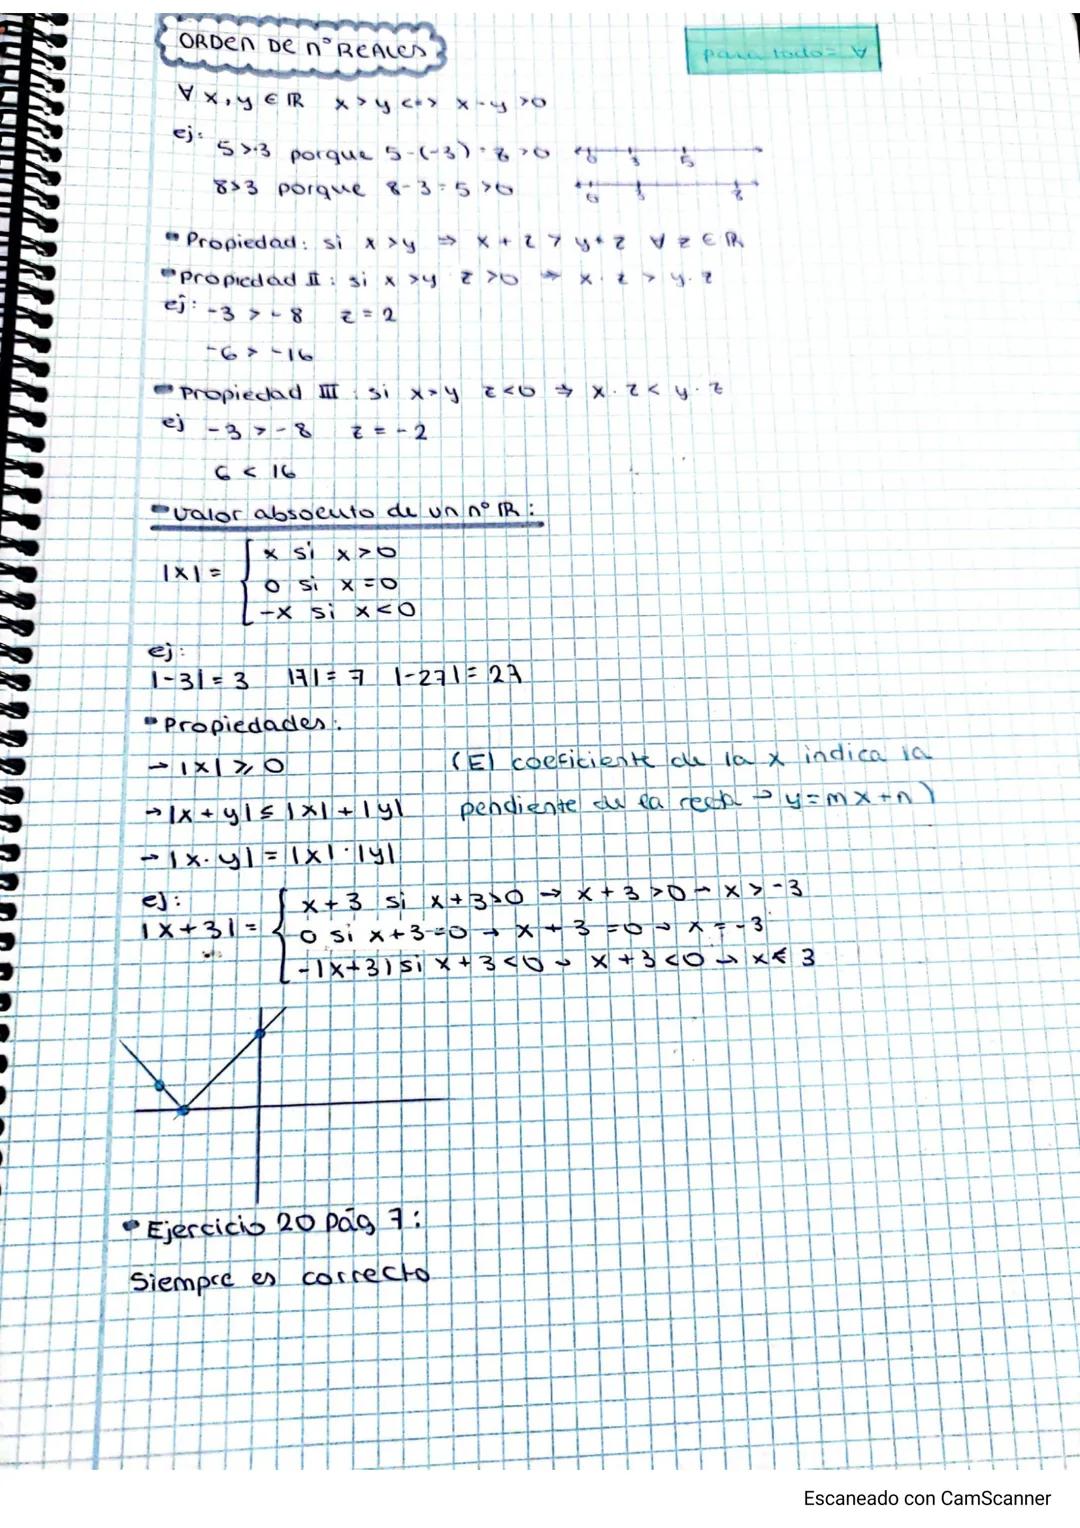 ORDEN DE nº REALES
para todo = ∀
∀ x, y ∈ ℝ x > y <=> x - y > 0
ej: 5 > -3 porque 5 - (-3) = 8 > 0
8 > 3 porque 8 - 3 = 5 > 0
Propiedad: si x > y ⇒ x + z > y + z ∀ z ∈ ℝ
Propiedad II: si x > y z > 0 ⇒ x · z > y · z
ej: -3 > -8 z = 2
-6 > -16
Propiedad III: si x > y z < 0 ⇒ x · z < y · z
ej -3 > -8 z = -2
6 < 16
Valor absoluto de un nº ℝ:
|x| = { x si x > 0
0 si x = 0
-x si x < 0
ej:
|-3| = 3 |7| = 7 |-27| = 27
Propiedades:
→ |x| ⩾ 0 (El coeficiente de la x indica la
→ |x + y| ≤ |x| + |y| pendiente de la recta → y = mx + n)
→ |x · y| = |x| · |y|
ej:
|x + 3| = { x + 3 si x + 3 > 0 → x + 3 > 0 → x > -3
0 si x + 3 = 0 → x + 3 = 0 → x = -3
-(x + 3) si x + 3 < 0 → x + 3 < 0 → x < 3
Ejercicio 20 pág 7:
Siempre es correcto
Escaneado con CamScanner